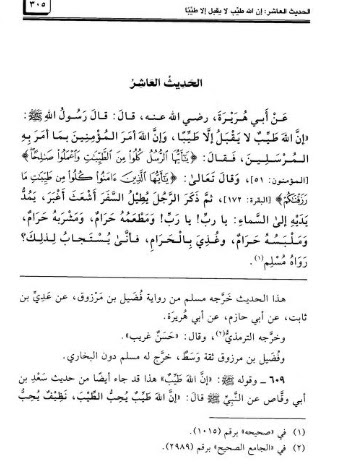 الحديث العاشر: إن الله طيِّب لا يقبل إلا طيِّبًا
٣٠٥
الحَدِيثُ العَاشِرُ
عَنْ أَبِي هُرَيْرَةَ، رضي الله عنه، قَالَ: قَالَ رَسُولُ اللهِ ﷺ:
«إِنَّ اللهَ طَيِّبٌ لَا يَقْبَلُ إِلَّا طَيِّبًا، وَإِنَّ اللهَ أَمَرَ المُؤْمِنِينَ بِمَا أَمَرَ بِهِ
المُرْسَلِينَ، فَقَالَ: ﴿يَٰٓأَيُّهَا ٱلرُّسُلُ كُلُوا۟ مِنَ ٱلطَّيِّبَٰتِ وَٱعْمَلُوا۟ صَٰلِحًا﴾
[المؤمنون: ٥١]، وَقَالَ تَعَالَىٰ: ﴿يَٰٓأَيُّهَا ٱلَّذِينَ ءَامَنُوا۟ كُلُوا۟ مِن طَيِّبَٰتِ مَا
رَزَقْنَٰكُمْ﴾ [البقرة: ١٧٢]، ثُمَّ ذَكَرَ الرَّجُلَ يُطِيلُ السَّفَرَ أَشْعَثَ أَغْبَرَ، يَمُدُّ
يَدَيْهِ إِلىَ السَّمَاءِ: يا ربِّ! يا ربِّ! وَمَطْعَمُهُ حَرَامٌ، وَمَشْرَبُهُ حَرَامٌ،
وَمَلْبَسُهُ حَرَامٌ، وَغُذِيَ بِالْحَرَامِ، فَأنَّىٰ يُسْتَجَابُ لِذلِكَ؟
رَوَاهُ مُسْلِم(١).
هذا الحديث خَرَّجه مسلم من رواية فُضَيل بن مَرْزوق، عن عَدِيِّ بن
ثابت، عن أبي حازم، عن أبي هُرَيرَة.
وخرَّجه الترمذيُّ(٢)، وقال: «حَسَنٌ غريب».
وفُضَيل بن مرزوق ثقة وَسَطٌ، خرَّج له مسلم دون البخاري.
٦٠٩ ـ وقوله ﷺ: «إِنَّ اللهَ طَيِّبٌ» هذا قد جاء أيضًا من حديث سَعْدِ بن
أبي وقَّاص عن النَّبيِّ ﷺ قال: «إنَّ اللهَ طَيِّبٌ يُحِبُّ الطَّيِّبَ، نَظِيفٌ يُحِبُّ
(١) في «صحيحه» برقم (١٠١٥)
(٢) في «الجامع الصحيح» برقم (٢٩٨٩)